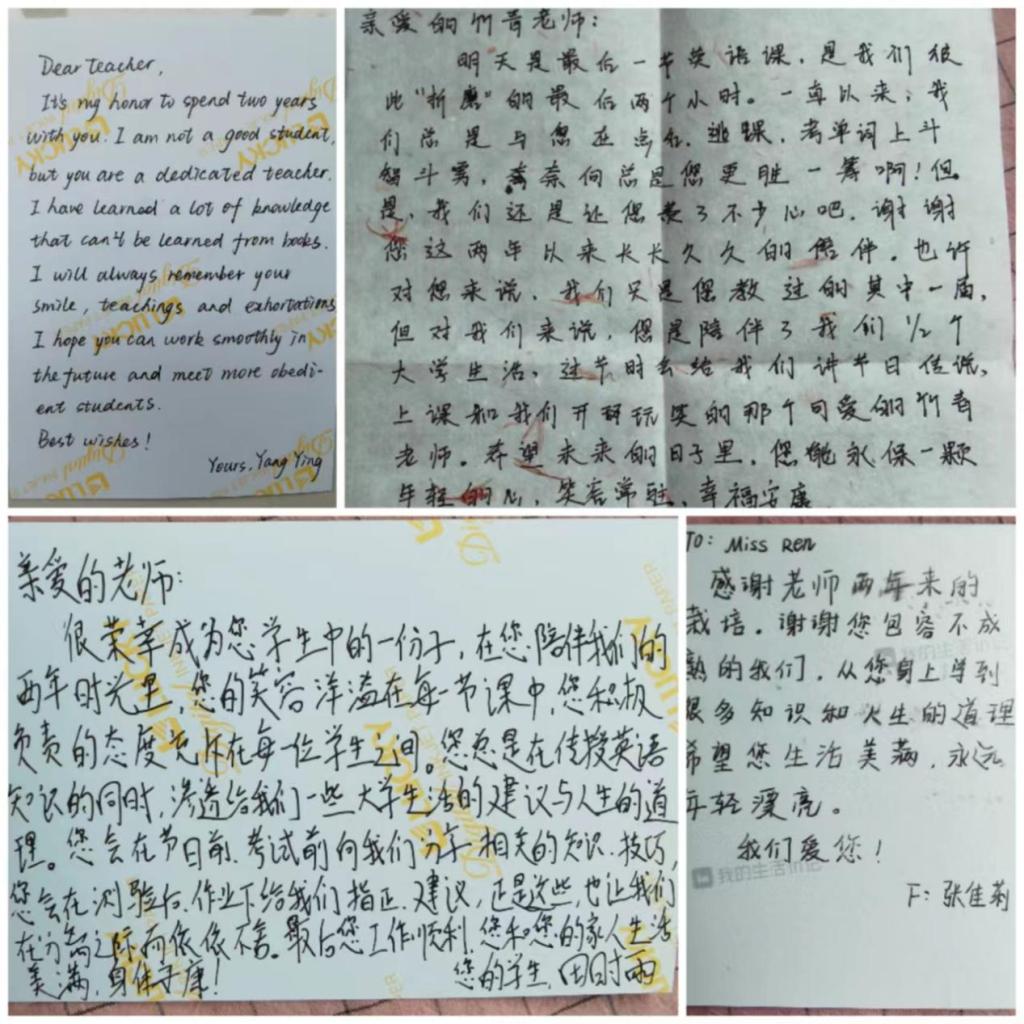 Dear teacher,
It's my honor to spend two years
with you. I am not a good student,
but you are a dedicated teacher.
I have learned a lot of knowledge
that can't be learned from books.
I will always remember your
smile, teachings and exhortations
I hope you can work smoothly in
the future and meet more obedi-
ent students.
Best wishes!
Yours, Yang Ying
亲爱的竹青老师：
明天是最后一节英语课，是我们彼
此“折磨”的最后两个小时。一直以来，我
们总是与您在点名、逃课、考单词上斗
智斗勇，奈何总是您更胜一筹啊！但
是，我们还是让您费了不少心吧，谢谢
您这两年以来长长久久的陪伴。也许
对您来说，我们只是您教过的其中一届，
但对我们来说，您是陪伴了我们1/2个
大学生活，过节时会给我们讲节日传说，
上课和我们开玩笑的那个可爱的竹青
老师。希望未来的日子里，您能永保一颗
年轻的心，笑容常驻，幸福安康
亲爱的老师：
很荣幸成为您学生中的一份子，在您陪伴我们的
两年时光里，您的笑容洋溢在每一节课中，您积极
负责的态度充斥在每一位学生之间。您总是在传授英语
知识的同时，渗透给我们一些大学生活的建议与人生的道
理。您会在节日前、考试前向我们分享相关的知识、技巧，
您会在测验后、作业下给我们指正、建议，正是这些，也让我们
在分离之际而依依不舍。最后您工作顺利，您和您的家人生活
美满，身体健康！
您的学生，田时雨
TO: Miss Ren
感谢老师两年来的
栽培。谢谢您包容不成
熟的我们，从您身上学到
很多知识和人生的道理
希望您生活美满，永远
年轻漂亮。
我们爱您！
F: 张佳莉